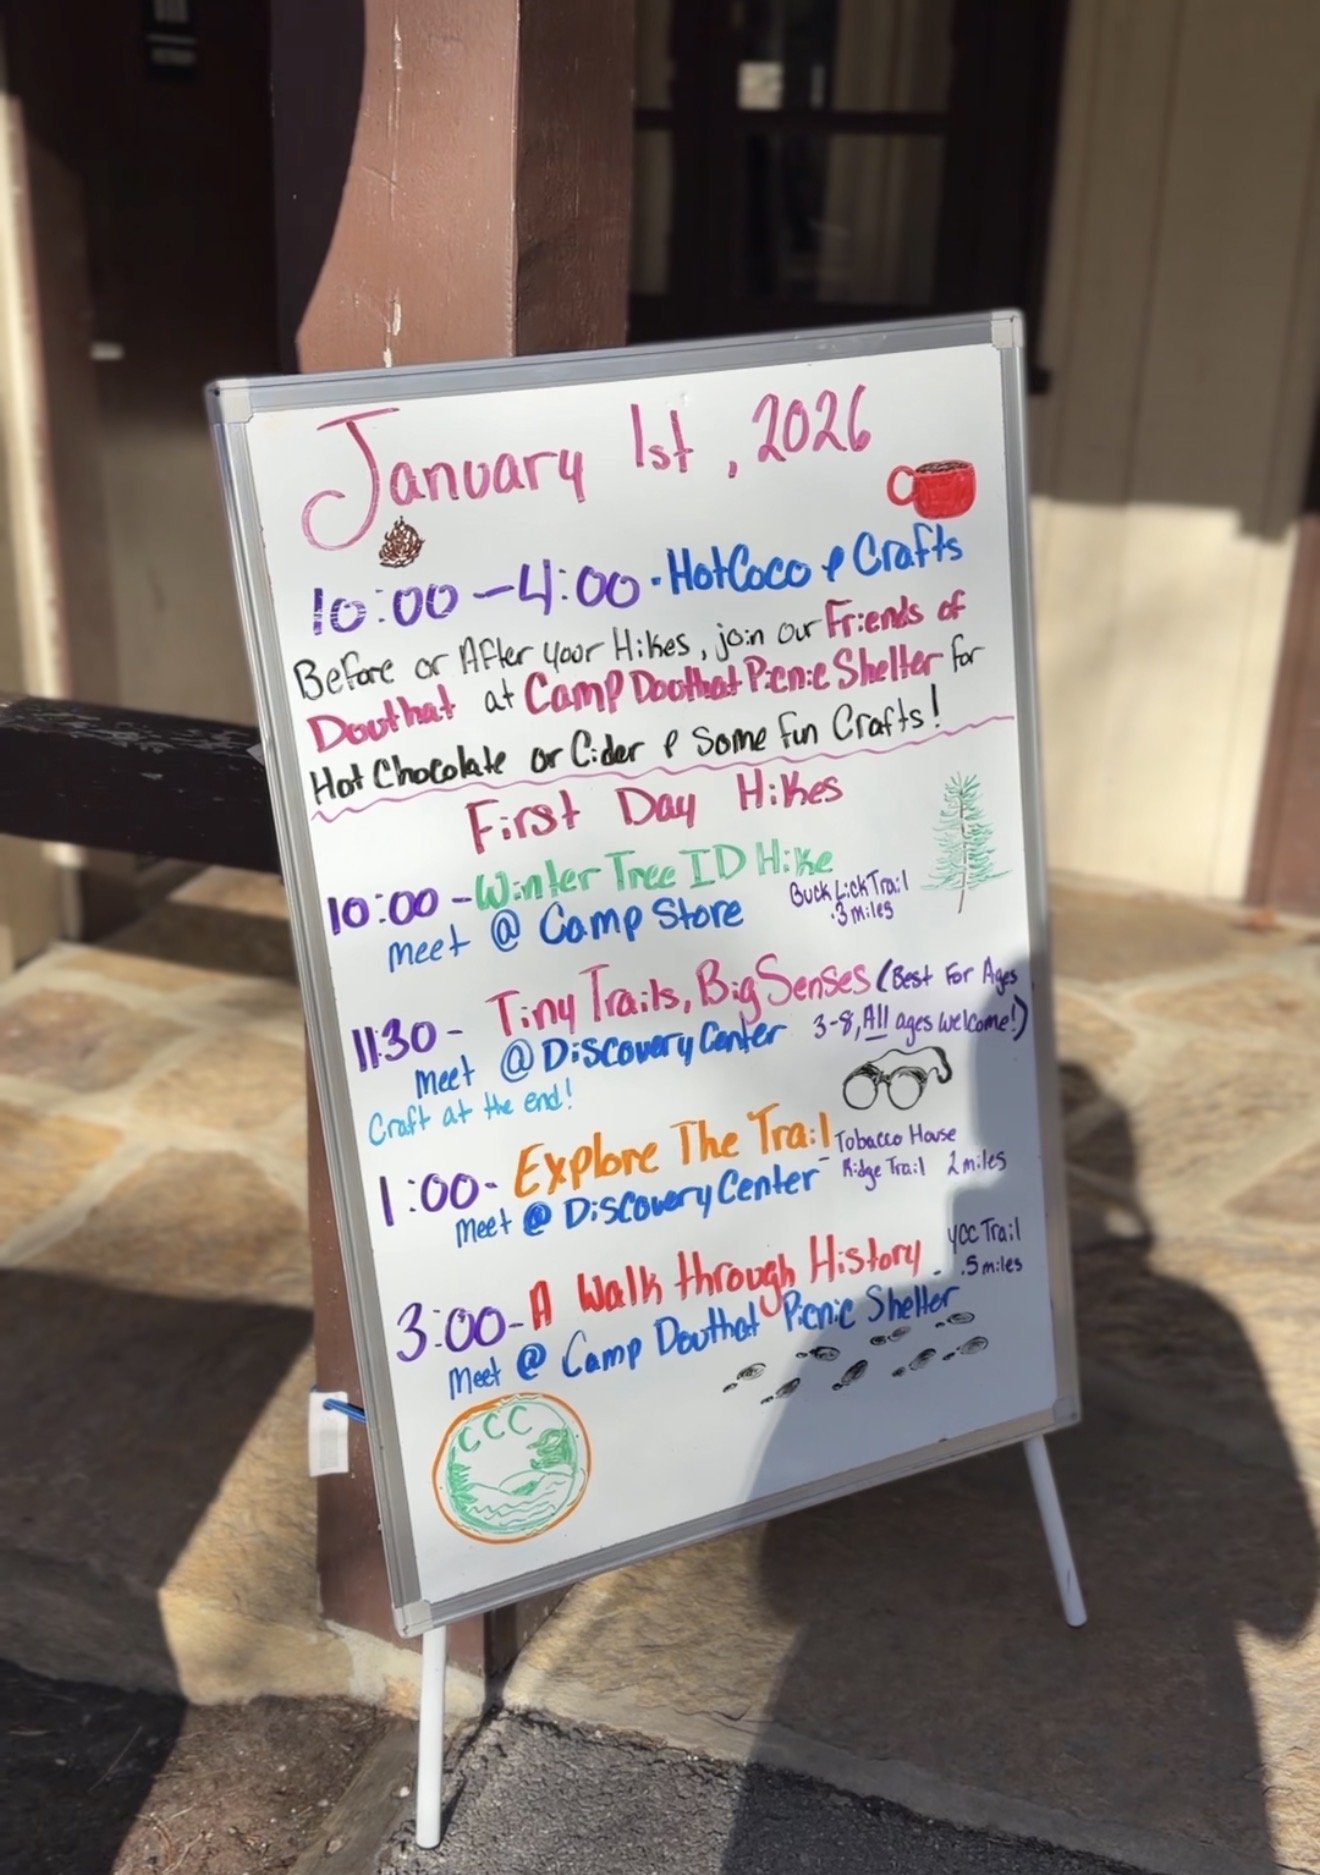 January 1st, 2026
10:00 - 4:00 · Hot Coco & Crafts
Before or After your Hikes, join our Friends of
Douthat at Camp Douthat Picnic Shelter for
Hot Chocolate or Cider & Some fun Crafts!
First Day Hikes
10:00 - Winter Tree ID Hike
Meet @ Camp Store
Buck Lick Trail
.3 miles
11:30 - Tiny Trails, Big Senses (Best For Ages
3-8, All ages welcome!)
Meet @ Discovery Center
Craft at the end!
1:00 - Explore The Trail
Meet @ Discovery Center
- Tobacco House
Ridge Trail 2 miles
3:00 - A Walk through History .
YCC Trail
.5 miles
Meet @ Camp Douthat Picnic Shelter
CCC